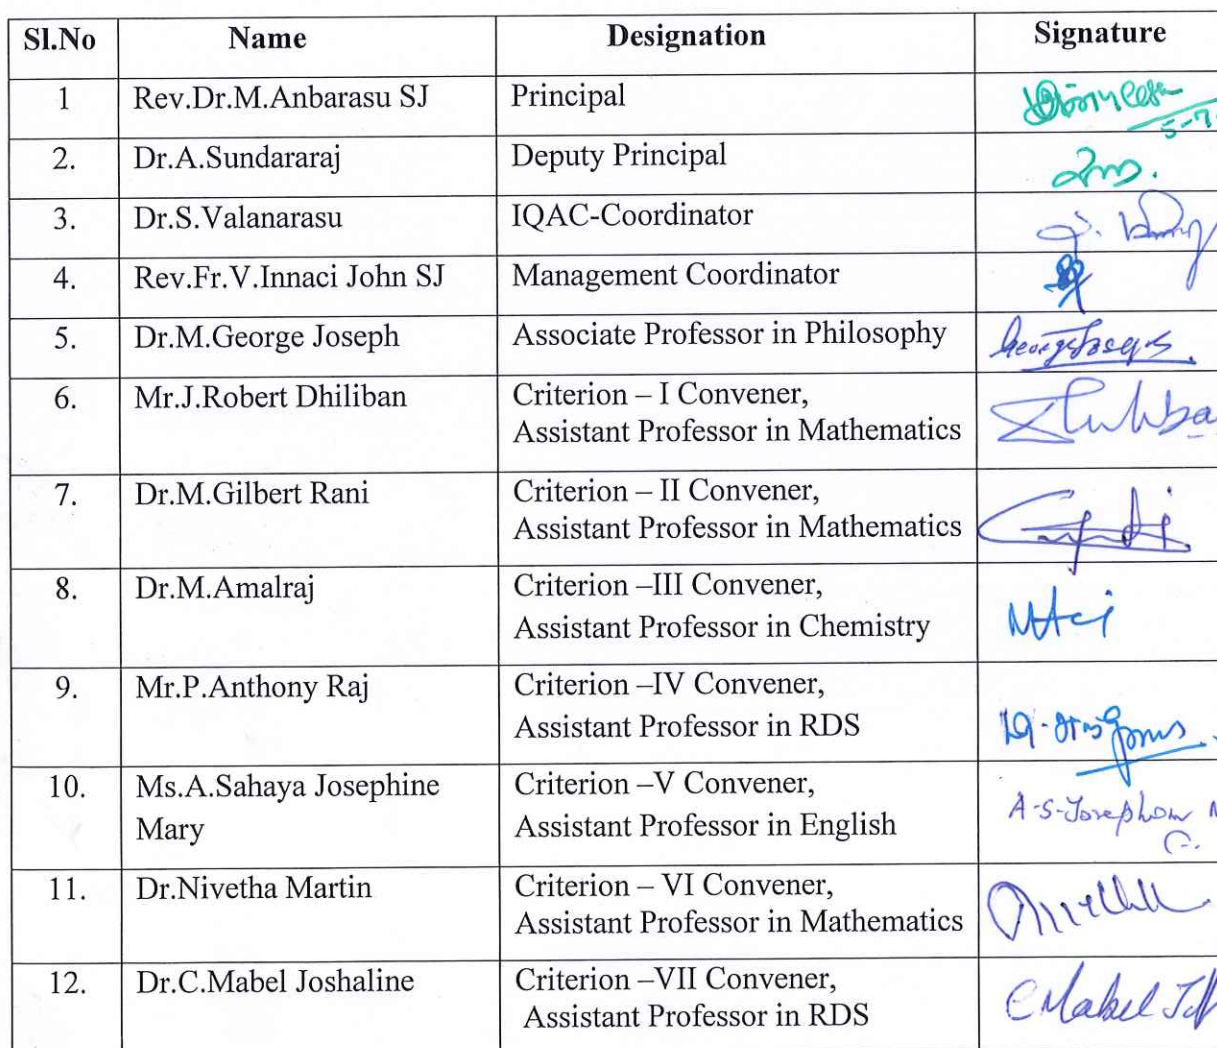 Sl.No Name Designation Signature
1 Rev.Dr.M.Anbarasu SJ Principal
5-7
2. Dr.A.Sundararaj Deputy Principal
3. Dr.S.Valanarasu IQAC-Coordinator
4. Rev.Fr.V.Innaci John SJ Management Coordinator
5. Dr.M.George Joseph Associate Professor in Philosophy George Joseph
6. Mr.J.Robert Dhiliban Criterion – I Convener,
Assistant Professor in Mathematics
7. Dr.M.Gilbert Rani Criterion – II Convener,
Assistant Professor in Mathematics
8. Dr.M.Amalraj Criterion –III Convener,
Assistant Professor in Chemistry
9. Mr.P.Anthony Raj Criterion –IV Convener,
Assistant Professor in RDS
10. Ms.A.Sahaya Josephine Criterion –V Convener,
Mary Assistant Professor in English
11. Dr.Nivetha Martin Criterion – VI Convener,
Assistant Professor in Mathematics
12. Dr.C.Mabel Joshaline Criterion –VII Convener,
Assistant Professor in RDS C Mabel